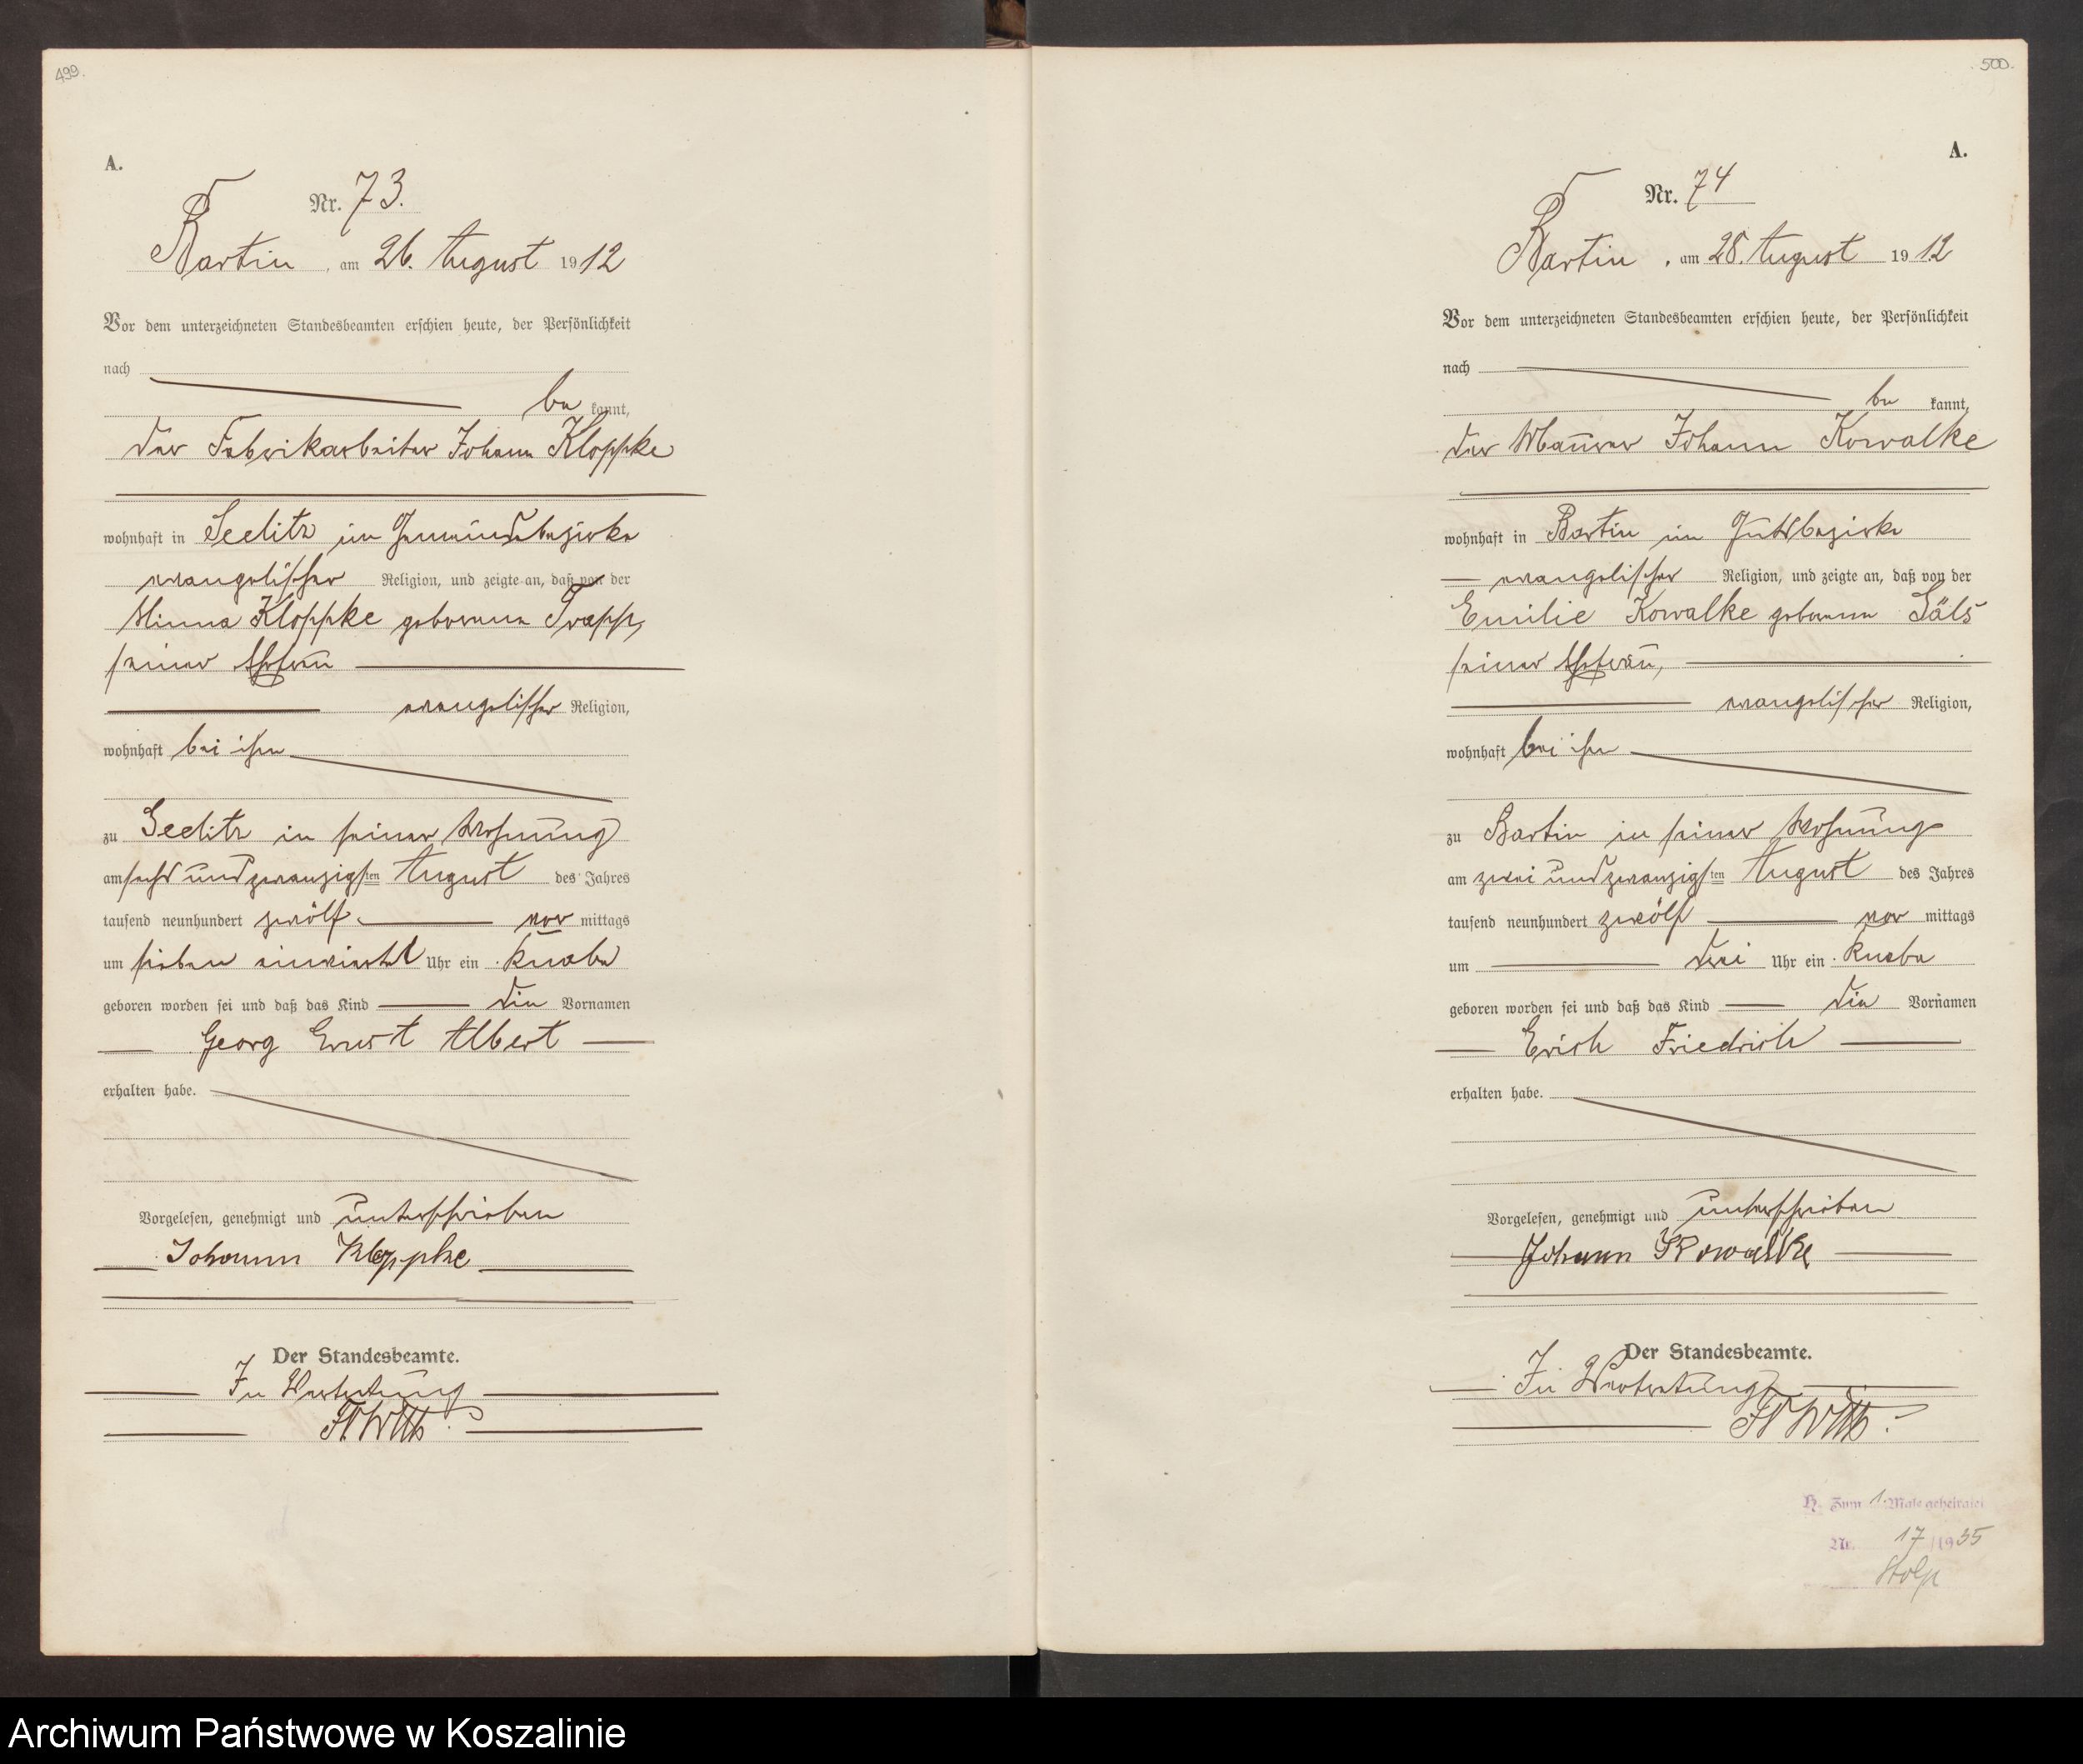 499.
A.
Nr. 73.
Bartin, am 26. August 1912
Vor dem unterzeichneten Standesbeamten erschien heute, der Persönlichkeit
nach
be kannt,
der Fabrikarbeiter Johann Kloppke
wohnhaft in Seelitz im Gemeindebezirke
evangelischer Religion, und zeigte an, daß von der
Minna Kloppke geborenen Trapp,
seiner Ehefrau
evangelischer Religion,
wohnhaft bei ihm
zu Seelitz in seiner Wohnung
am sechsundzwanzigsten August des Jahres
tausend neunhundert zwölf vor mittags
um sieben einviertel Uhr ein Knabe
geboren worden sei und daß das Kind die Vornamen
Georg Ernst Albert
erhalten habe.
Vorgelesen, genehmigt und unterschrieben
Johann Kloppke
Der Standesbeamte.
In Vertretung
500.
A.
Nr. 74
Bartin, am 28. August 1912
Vor dem unterzeichneten Standesbeamten erschien heute, der Persönlichkeit
nach
be kannt,
der Maurer Johann Kowalke
wohnhaft in Bartin im Gutsbezirke
evangelischer Religion, und zeigte an, daß von der
Emilie Kowalke geborenen Säls
seiner Ehefrau,
evangelischer Religion,
wohnhaft bei ihm
zu Bartin in seiner Wohnung
am zweiundzwanzigsten August des Jahres
tausend neunhundert zwölf vor mittags
um drei Uhr ein Knabe
geboren worden sei und daß das Kind die Vornamen
Erich Friedrich
erhalten habe.
Vorgelesen, genehmigt und unterschrieben
Johann Kowalke
Der Standesbeamte.
In Vertretung
H. Zum 1. Male geheiratet
Nr. 17/1935
Stolp
Archiwum Państwowe w Koszalinie